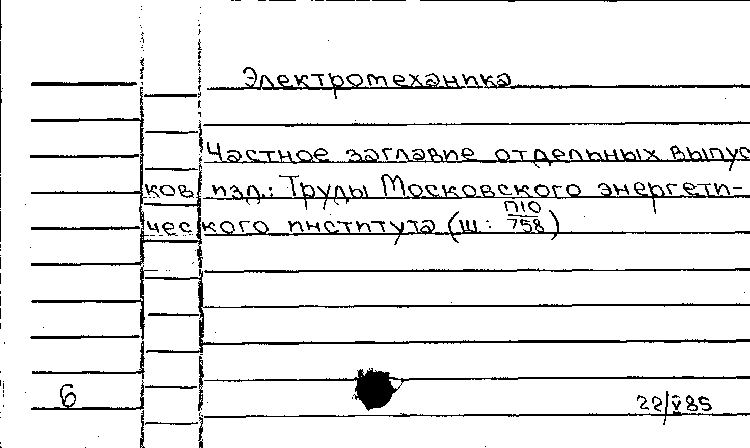 Электромеханика
Частное заглавие отдельных выпус
ков изд.: Труды Московского энергети-
ческого института (ш: П10/758)
6
22/V 85